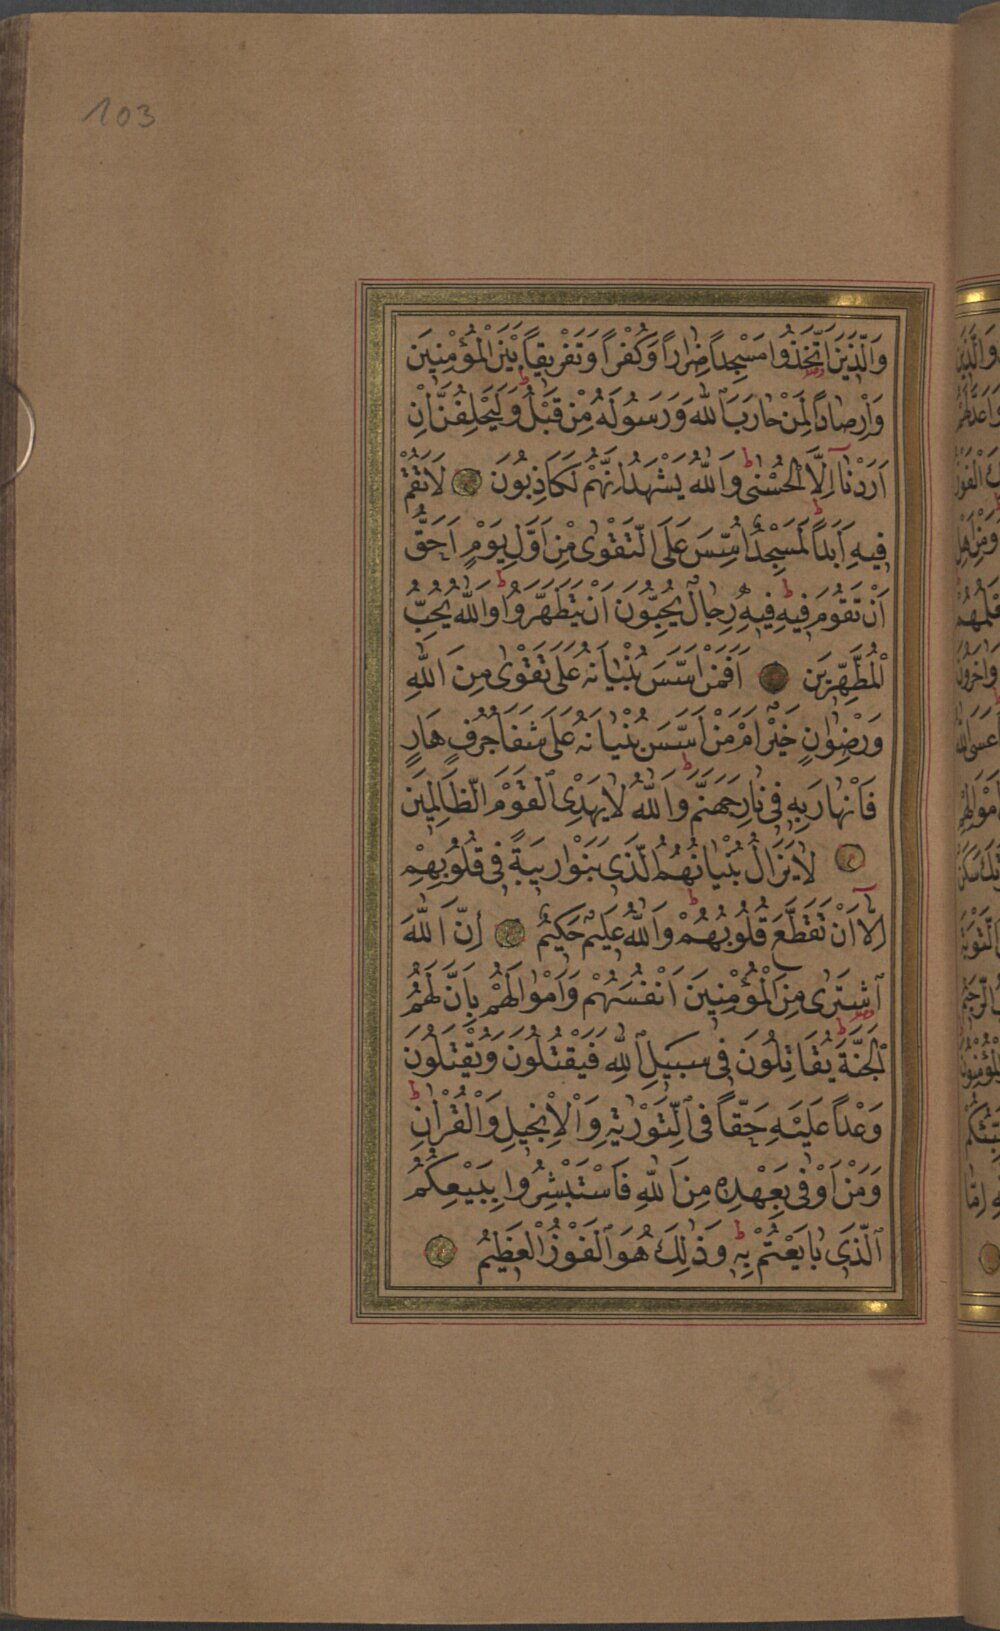 103
وَالَّذينَ اتَّخَذُوا مَسْجِداً ضِرَاراً وَكُفْراً وَتَفْريقاً بَيْنَ الْمُؤْمِنينَ
وَاِرْصَاداً لِمَنْ حَارَبَ اللّٰهَ وَرَسُولَهُ مِنْ قَبْلُ وَلَيَحْلِفُنَّ اِنْ
اَرَدْنَا اِلَّا الْحُسْنٰى وَاللّٰهُ يَشْهَدُ اِنَّهُمْ لَكَاذِبُونَ لَا تَقُمْ
فيهِ اَبَداً لَمَسْجِدٌ اُسِّسَ عَلَى التَّقْوٰى مِنْ اَوَّلِ يَوْمٍ اَحَقُّ
اَنْ تَقُومَ فيهِ فيهِ رِجَالٌ يُحِبُّونَ اَنْ يَتَطَهَّرُوا وَاللّٰهُ يُحِبُّ
الْمُطَّهِّرينَ اَفَمَنْ اَسَّسَ بُنْيَانَهُ عَلٰى تَقْوٰى مِنَ اللّٰهِ
وَرِضْوَانٍ خَيْرٌ اَمْ مَنْ اَسَّسَ بُنْيَانَهُ عَلٰى شَفَا جُرُفٍ هَارٍ
فَانْهَارَ بِهِ فى نَارِ جَهَنَّمَ وَاللّٰهُ لَا يَهْدِى الْقَوْمَ الظَّالِمينَ
لَا يَزَالُ بُنْيَانُهُمُ الَّذى بَنَوْا ريبَةً فى قُلُوبِهِمْ
اِلَّا اَنْ تَقَطَّعَ قُلُوبُهُمْ وَاللّٰهُ عَليمٌ حَكيمٌ اِنَّ اللّٰهَ
اشْتَرٰى مِنَ الْمُؤْمِنينَ اَنْفُسَهُمْ وَاَمْوَالَهُمْ بِاَنَّ لَهُمُ
الْجَنَّةَ يُقَاتِلُونَ فى سَبيلِ اللّٰهِ فَيَقْتُلُونَ وَيُقْتَلُونَ
وَعْداً عَلَيْهِ حَقّاً فِى التَّوْرٰيةِ وَالْاِنْجيلِ وَالْقُرْاٰنِ
وَمَنْ اَوْفٰى بِعَهْدِهِ مِنَ اللّٰهِ فَاسْتَبْشِرُوا بِبَيْعِكُمُ
الَّذى بَايَعْتُمْ بِهِ وَذٰلِكَ هُوَ الْفَوْزُ الْعَظيمُ